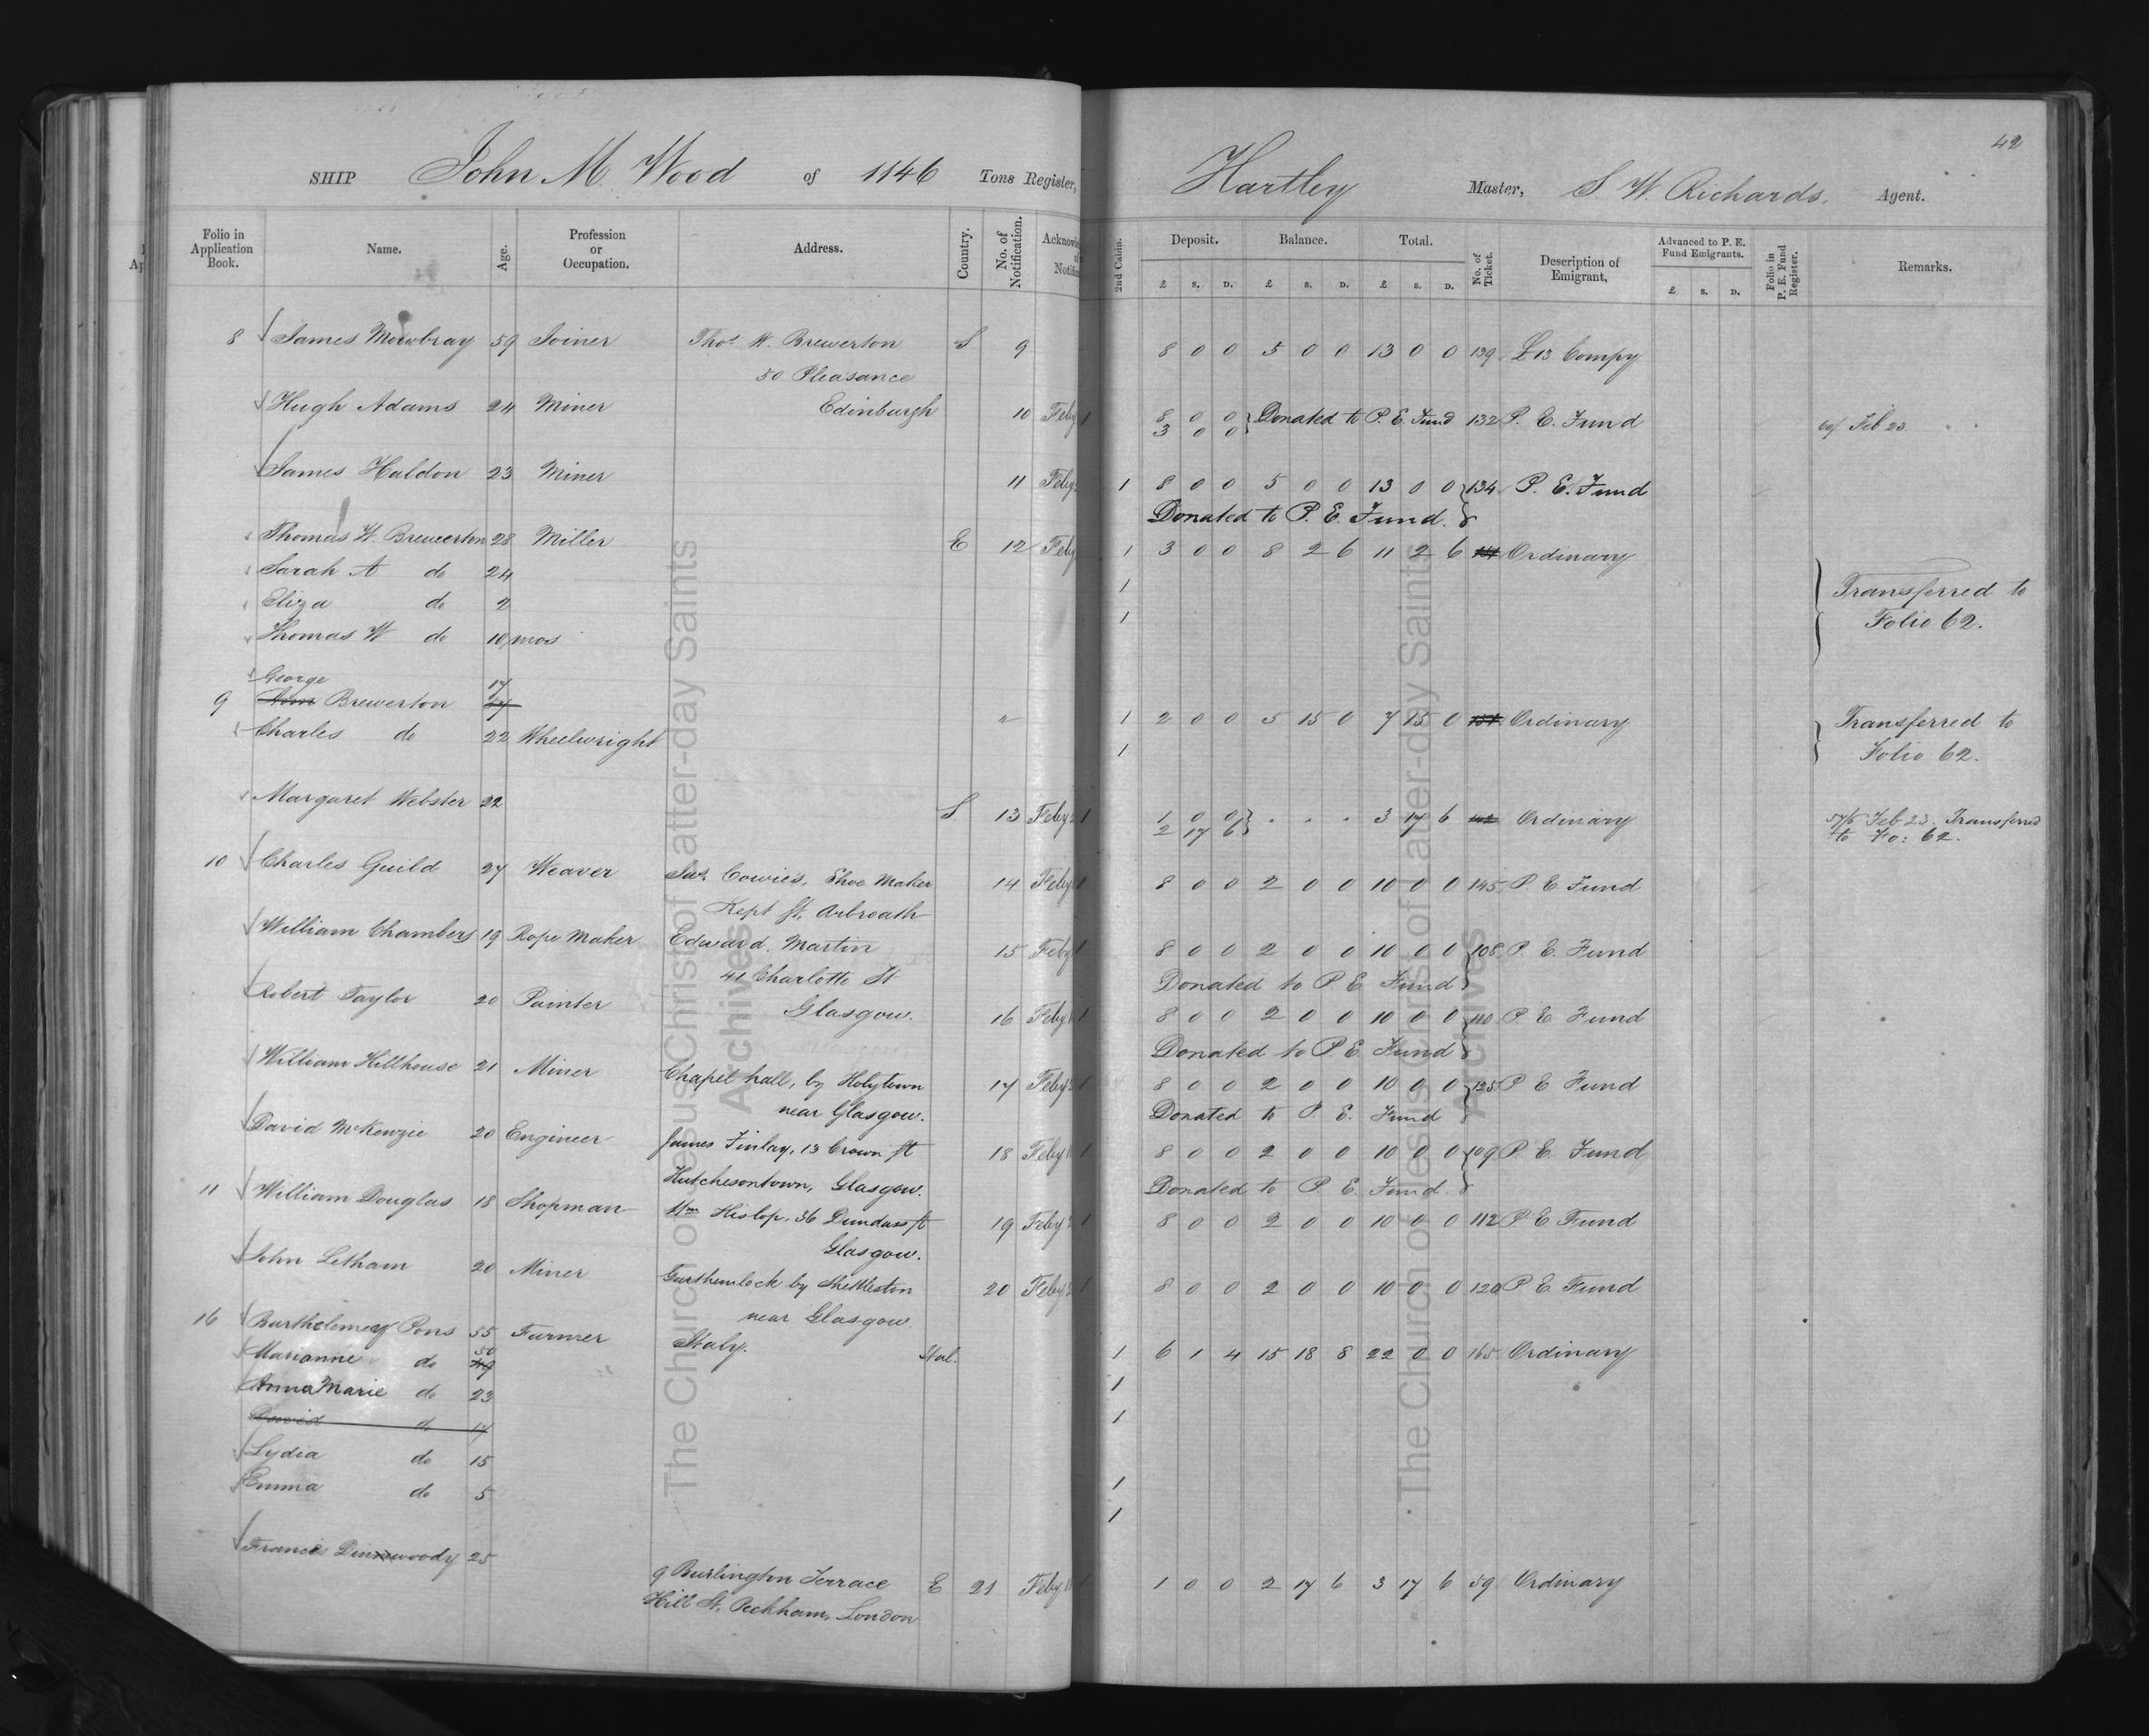 42
SHIP John M. Wood of 1146 Tons Register, Hartley Master, S. W. Richards. Agent.
Folio in Application Book. Name. Age. Profession or Occupation. Address. Country. No. of Notification. 2nd Cabin. Deposit. Balance. Total. No. of Ticket. Description of Emigrant, Advanced to P. E. Fund Emigrants. Folio in P. E. Fund Register. Remarks.
£ S. D. £ S. D. £ S. D. £ S. D.
8 James Mowbray 59 Joiner Thos. W. Brewerton S 9 8 0 0 5 0 0 13 0 0 139 £13 Compy
50 Pleasance
Hugh Adams 24 Miner Edinburgh 10 Feby 1 8 0 0 Donated to P. E. Fund 132 P. E. Fund Feb 23
3 0 0
James Haldon 23 Miner 11 Feby 1 8 0 0 5 0 0 13 0 0 134 P. E. Fund
Donated to P. E. Fund.
Thomas W. Brewerton 28 Miller E 12 Feby 1 3 0 0 8 2 6 11 2 6 Ordinary
Sarah A do 24 1 Transferred to
Eliza do 2 1 Folio 62.
Thomas W do 10 mos
George 17
9 Brewerton 1 2 0 0 5 15 0 7 15 0 Ordinary Transferred to
Charles do 22 Wheelwright 1 Folio 62.
Margaret Webster 22 S 13 Feby 1 1 0 0 . . . 3 17 6 Ordinary 57/6 Feb 23. Transferred
2 17 6 to Fo: 62.
10 Charles Guild 27 Weaver Jas. Cowies, Shoe Maker 14 Feby 1 8 0 0 2 0 0 10 0 0 145 P. E Fund
Kept St, Arbroath
William Chambers 19 Rope Maker Edward Martin 15 Feby 1 8 0 0 2 0 0 10 0 0 108 P. E. Fund
41 Charlotte St Donated to P E Fund
Robert Taylor 20 Painter Glasgow. 16 Feby 1 8 0 0 2 0 0 10 0 0 110 P E Fund
Donated to P E Fund
William Hillhouse 21 Miner Chapel hall, by Holytown 17 Feby 1 8 0 0 2 0 0 10 0 0 125 P E Fund
near Glasgow. Donated to P. E. Fund
David McKenzie 20 Engineer James Finlay, 13 Crown St 18 Feby 1 8 0 0 2 0 0 10 0 0 109 P. E. Fund
Hutchesontown, Glasgow. Donated to P. E. Fund.
11 William Douglas 18 Shopman Wm Hislop, 36 Dundass St 19 Feby 1 8 0 0 2 0 0 10 0 0 112 P. E Fund
Glasgow.
John Letham 20 Miner Garthemlock by Shettleston 20 Feby 1 8 0 0 2 0 0 10 0 0 120 P E Fund
near Glasgow
16 Barthelemey Pons 55 Farmer Italy. Ital. 1 6 1 4 15 18 8 22 0 0 165 Ordinary
Marianne do 50 49 1
Anna Marie do 23 1
David do 17
Lydia do 15 1
Emma do 5 1
Francis Dinwoody 25
9 Burlington Terrace E 21 Feby 1 1 0 0 2 17 6 3 17 6 59 Ordinary
Hill St, Peckham, London
The Church of Jesus Christ of Latter-day Saints
Archives
The Church of Jesus Christ of Latter-day Saints
Archives